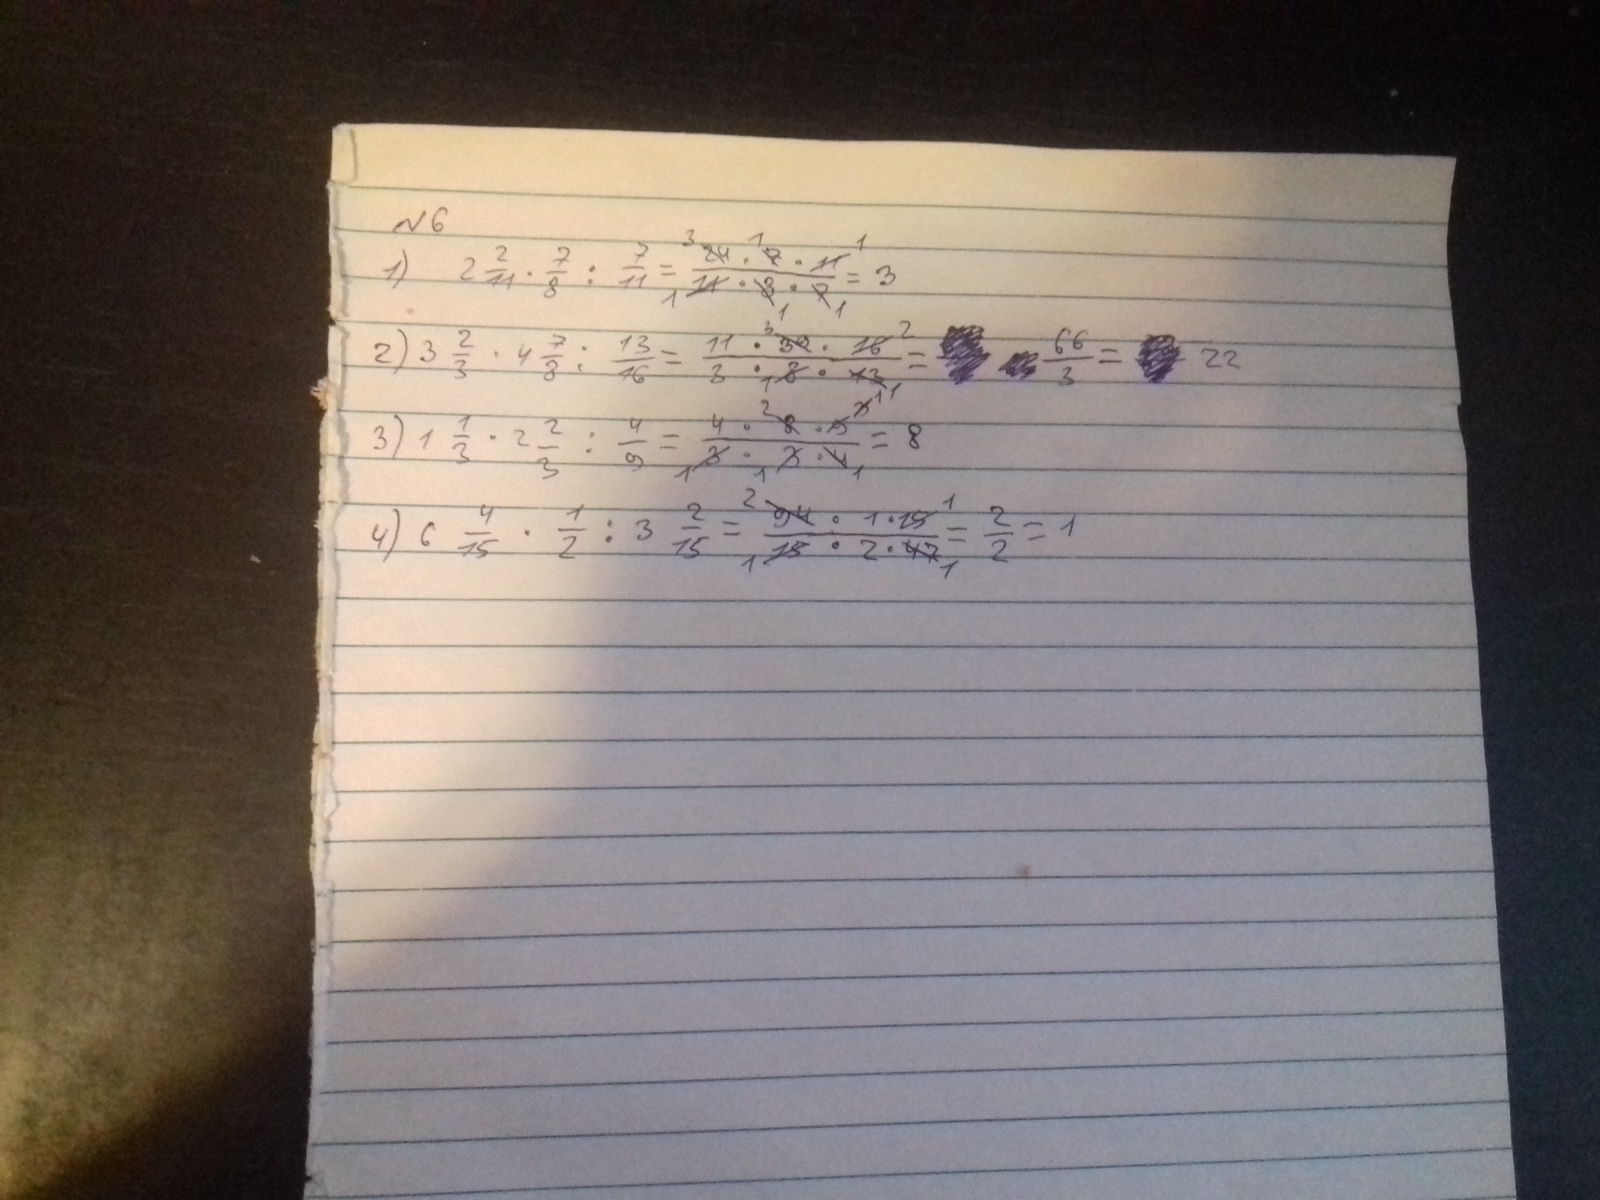 №6
1) 2 2/11 · 7/8 : 7/11 = 24 · 7 · 11 / 11 · 8 · 7 = 3
2) 3 2/3 · 4 7/8 : 13/16 = 11 · 39 · 16 / 3 · 8 · 13 = 66/3 = 22
3) 1 1/3 · 2 2/3 : 4/9 = 4 · 8 · 9 / 3 · 3 · 4 = 8
4) 6 4/15 · 1/2 : 3 2/15 = 94 · 1 · 15 / 15 · 2 · 47 = 2/2 = 1